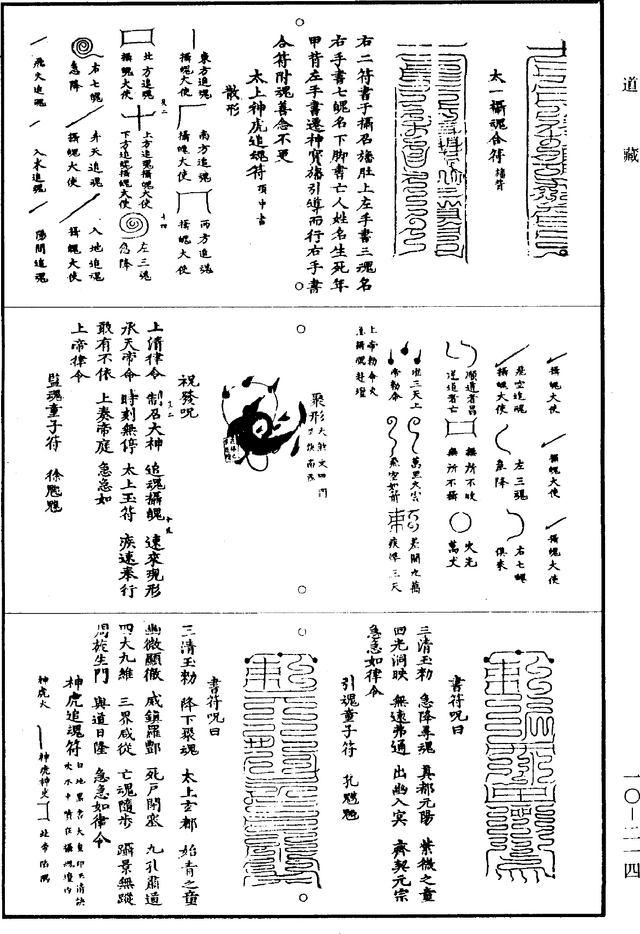 道藏
太一攝魂合符 播背
右二符書于攝召旛肚上左手書三魂名
右手書七魄名下脚書亡人姓名生死年
甲背左手書遷神寶旛引導而行右手書
合符附魂善念不更
太上神虎追魂符 頂中書
散形
東方追魂
攝魄大使
南方追魂
攝魄大使
西方追魂
攝魄大使
北方追魂
攝魄大使
上方追魂攝魄大使
下方追魂攝魄大使
左三魂
急降
右七魄
急降
升天追魂
攝魄大使
入地追魂
攝魄大使
飛火追魂
入水追魂
陽間追魂
攝魄大使
攝魄大使
攝魄大使
虛空追魂
攝魄大使
左三魂
急降
右七魄
俱來
順道者昌
逆道者亡
無所不收
無所不攝
火光
萬丈
唯三天上
帝勅令
上帝勅令火
聚形
祝發呪
上清律令 制召大神 追魂攝魄 速來現形
承天帝命 時刻無停 太上玉符 疾速奉行
敢有不依 上奏帝庭 急急如
上帝律令
監魂童子符
書符呪曰
三清玉勅 急降尋魂 真都元陽 紫微之童
四光洞映 無遠弗通 出幽入冥 齊契元宗
急急如律令
引魂童子符
書符呪曰
三清玉勅 降下聚魂 太上玄都 始青之童
幽微顯徹 威鎮羅酆 死戶閉塞 九孔肅道
四大九維 三界咸從 亡魂隨步 躡景無蹤
周於生門 與道日隆 急急如律令
神虎追魂符
神虎大
神虎神吏
一〇—二一四